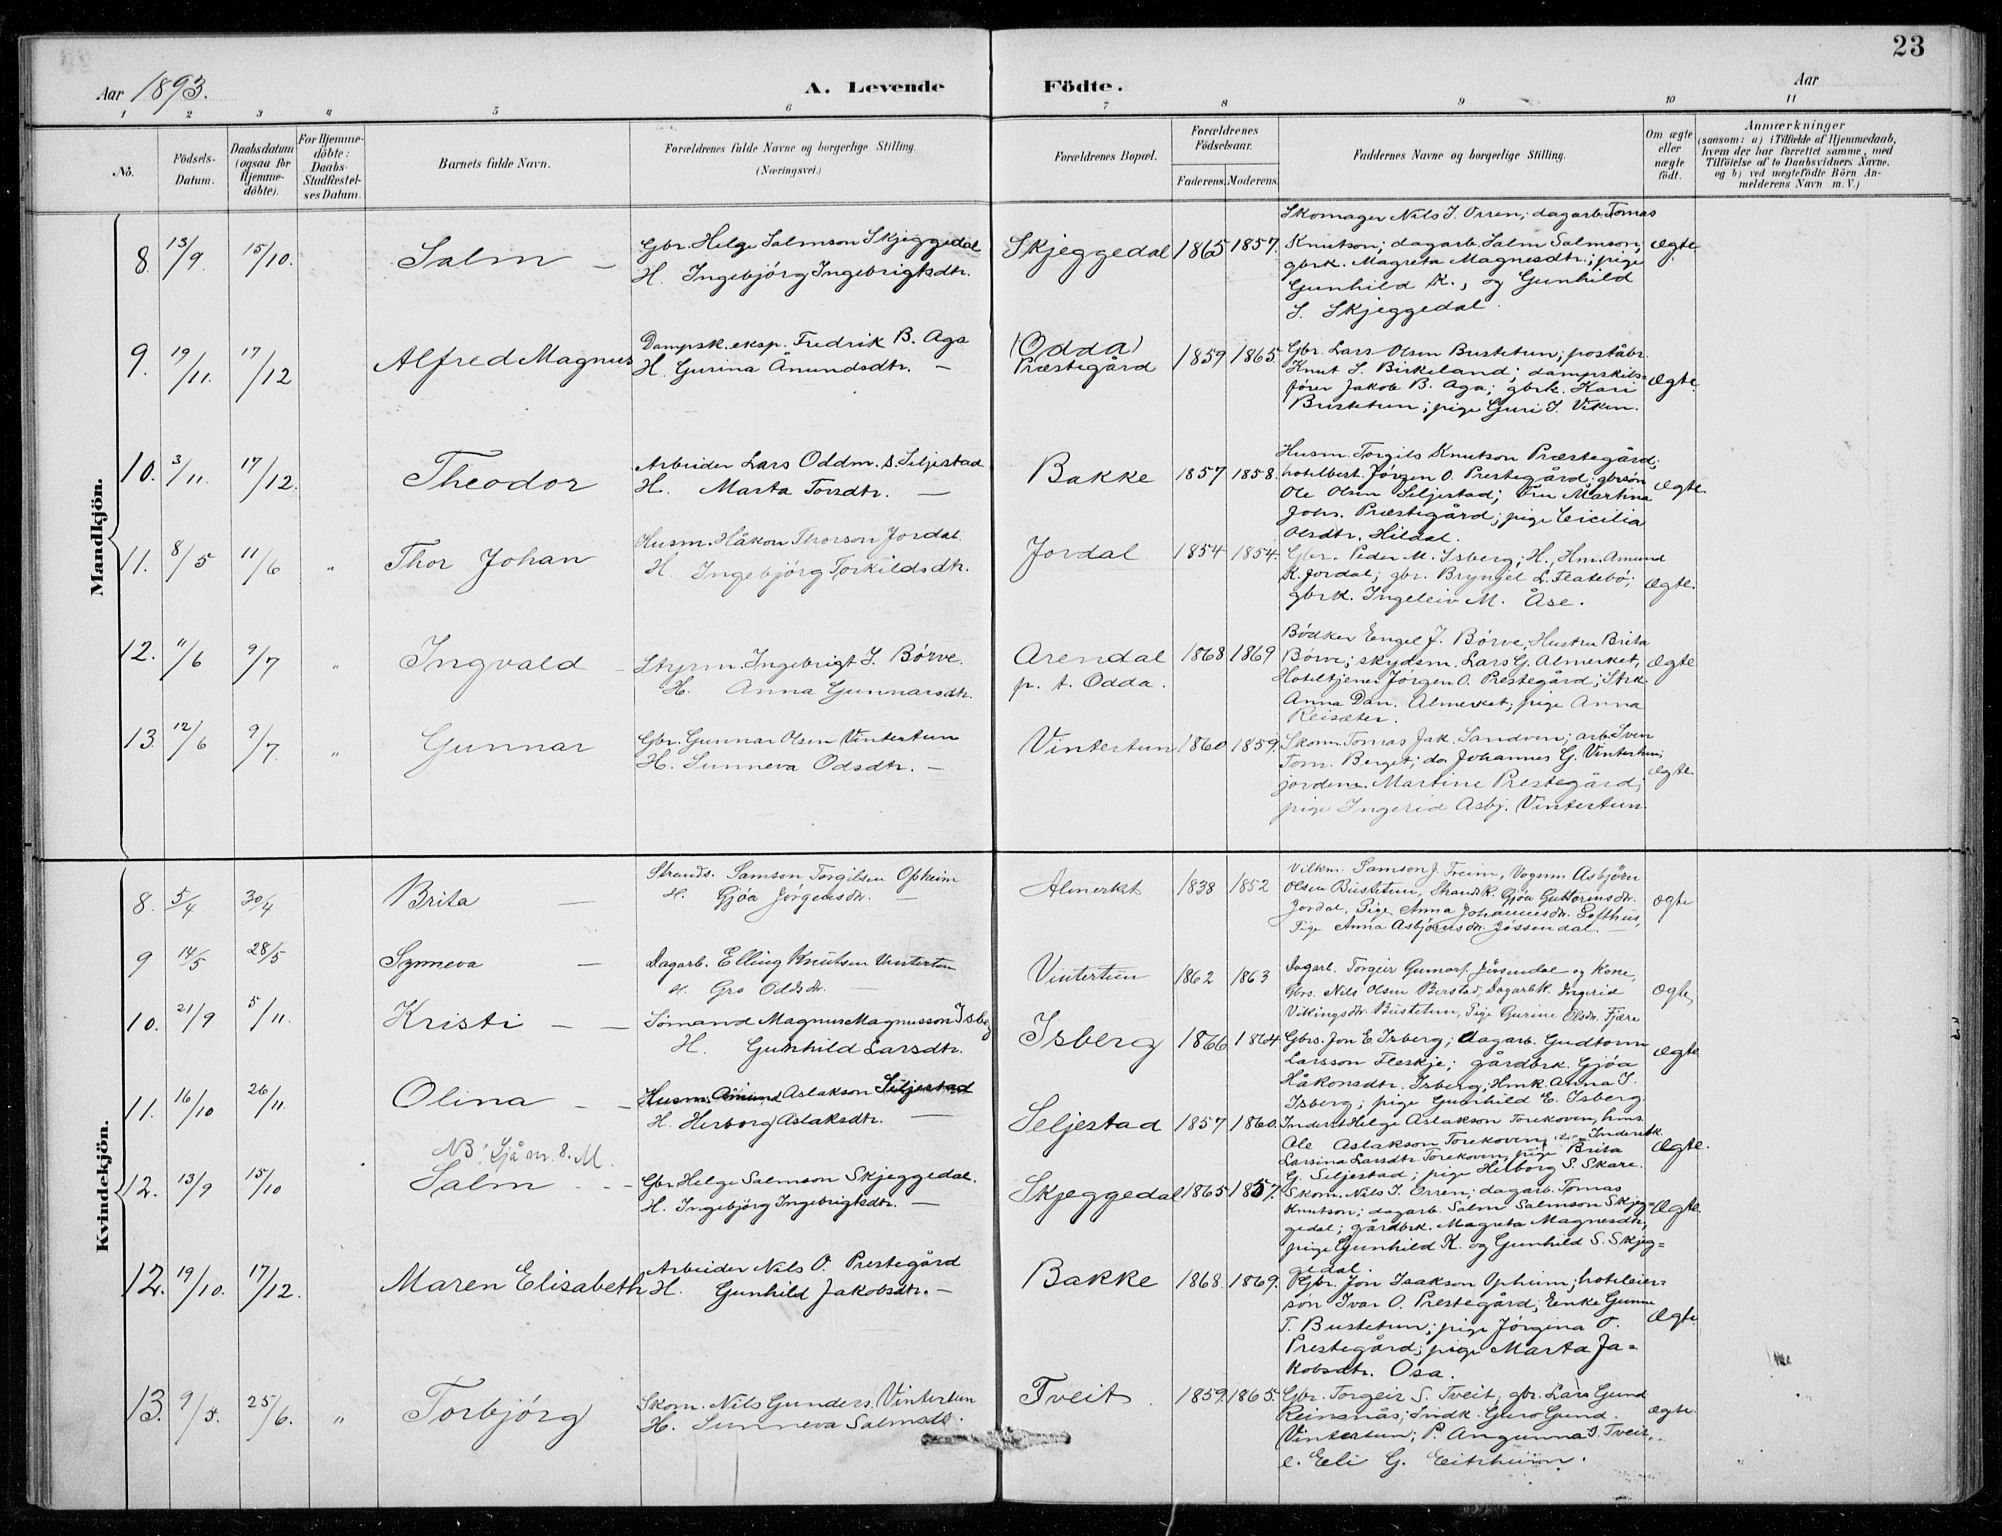 23
Aar 1893.
A. Levende Födte.
Aar
1 2 3 4 5 6 7 8 9 10 11
No.
Födsels-Datum.
Daabsdatum (ogsaa för Hjemme-döbte).
For Hjemme-döbte: Daabs-Stadfæstel-ses Datum.
Barnets fulde Navn.
Forældrenes fulde Navne og borgerlige Stilling.
(Næringsvei.)
Forældrenes Bopæl.
Forældrenes Födselsaar.
Faderens. Moderens.
Faddernes Navne og borgerlige Stilling.
Om ægte eller uægte födt.
Anmærkninger
(saasom: a) i Tilfælde af Hjemmedaab,
hvem der har forrettet samme, med
Tilföielse af to Daabsvidners Navne.
og b) ved uægtefödte Börn An-
melderens Navn m. V.)
Mandkjön.
8. 13/9. 15/10. Salm —
Gbr. Helge Salmson Skjeggedal
H. Ingebjörg Ingebrigtsdtr.
Skjeggedal 1865 1857.
Skomager Nils I. Orren; dagarb. Tomas
Knutson; dagarb. Salm Salmson;
gbrk. Magreta Magnesdtr.; pige
Gunhild K., og Gunhild
S. Skjeggedal.
Ægte.
9. 19/11. 17/12 Alfred Magnus
Dampsk.eksp. Fredrik B. Aga
H. Gurina Ånundsdtr. —
(Odda)
Præstegård 1859 1865.
Gbr. Lars Olsen Bustetun; poståbr.
Knut S. Birkeland; dampskibs-
förer Jakob B. Aga; gbrk. Kari
Bustetun; pige Guri I. Viken.
Ægte.
10. 3/11. 17/12. Theodor
Arbeider Lars Oddm. s. Seljestad
H. Marta Torsdtr. —
Bakke 1857 1858.
Husm. Torgils Knutson Præstegård;
hotelbest. Jörgen O. Prestegård; gbrsön
Ole Olsen Seljestad; fru Martina
Johs. Præstegård; pige Cicilia
Olsdtr. Hildal.
Ægte.
11. 8/5 11/6 " Thor Johan
Husm. Håkon Thorson Jordal
H. Ingebjörg Torkildsdtr.
Jordal 1854 1854.
Gbr. Peder M. Isberg; H., Hm. Amund
K. Jordal; gbr. Bryngel L. Flatebö;
gbrk. Ingeleiv M. Åse.
Ægte.
12. 11/6 9/7 " Ingvald —
Styrm. Ingebrigt I. Börve.
H. Anna Gunnarsdtr.
Arendal
p. t. Odda. 1868 1869
Bödker Engel J. Börve; Hustru Brita
Börve; skydsm. Lars G. Almerket,
Hoteltjener Jörgen O. Prestegård; Strk.
Anna Dan. Almerket; pige Anna
Reisæter.
Ægte
13. 12/6 9/7. " Gunnar
Gbr. Gunnar Olsen Vintertun
H. Sunneva Odsdtr. —
Vintertun 1860 1859.
Skom. Tomas Jak. Sandven; arb. Sven
Tom. Berget; do Johannes G. Vintertun;
jordem. Martine Prestegård;
pige Ingerid Asbj. Vintertun.
Ægte.
Kvindekjön.
8. 5/4 30/4 Brita —
Strands. Samson Torgilsen Opheim
H. Gjöa Jörgensdr. —
Almerket 1838 1852
Vilkm. Samson J. Freim, Vognm. Asbjörn
Olsen Bustetun, Strandk. Gjöa Guttormsdr.
Jordal, Pige Anna Johannesdr. Lofthus,
Pige Anna Asbjörnsdr. Jössendal. —
Ægte
9 14/5 28/5 Synneva —
Dagarb. Elling Knutsen Vintertun
H. Gro Oddsdr. —
Vintertun 1862 1863
Dagarb. Torgeir Gunnars. Jössendal og Kone,
Gbrs. Nils Olsen Berstad, Dagarbk. Ingerid
Vikingsdr. Bustetun, Pige Gurine Olsdr. Fjære
Ægte,
10. 21/9 5/11. Kristi — —
Sömand Magnus Magnusson Isberg
H. Gunhild Larsdtr.
Isberg 1866 1864
Gbrs. Jon E. Isberg; dagarb. Gudtorm
Larsson Fleskje; gårdbrk. Gjöa
Håkonsdtr. Isberg; Hmk. Anna I.
Isberg; pige Gunhild E. Isberg.
Ægte
11. 16/10 26/11. Olina — —
Husm. Åmund Aslakson Seljestad
H. Herborg Aslaksdtr. —
Seljestad 1857 1860.
Inderst Helge Aslakson Torekoven, hms.
Ole Aslakson Torekoven; Inderstk.
Larsina Larsdtr. Torekoven; pige Brita
G. Seljestad; pige Herborg S. Skare.
Ægte.
NB! Sjå nr. 8. M.
12. 13/9 15/10 Salm - - -
Gbr. Helge Salmson Skjeggedal.
H. Ingebjörg Ingebrigtsdtr. —
Skjeggedal 1865 1857.
Skom. Nils I. Orren; dagarb. Tomas
Knutson; dagarb. Salm Salmson Skjeg-
gedal; gårdbrk. Magreta Magnesdtr,
pige Gunhild K. og Gunhild S. Skjeg=
gedal.
Ægte.
12. 19/10. 17/12. Maren Elisabeth
Arbeider Nils O. Prestegård
H. Gunhild Jakobsdtr. —
Bakke 1868 1869.
Gbr. Jon Isakson Opheim; hoteleier-
sön Ivar O. Prestegård; Enke Gunne
T. Bustetun; pige Jörgina O.
Prestegård; pige Marta Ja=
kobsdtr. Osa.
Ægte
13. 9/5. 25/6. " Torbjörg
Skom. Nils Gunders. Vintertun
H. Sunneva Salmsdt.
Tveit. 1859. 1865.
Gbr. Torgeir S. Tveit; gbr. Lars Gund
Reinsnås; Indk. Guro Gund.
Vintertun; P. Angunna I. Tveit,
e. Eli G. Eitrheim.
Ægte.